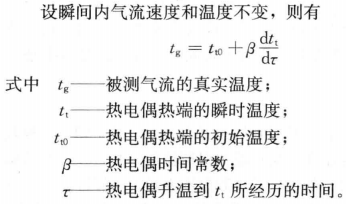 设瞬间内气流速度和温度不变，则有
t_g = t_{t0} + β dt_t/dτ
式中 t_g——被测气流的真实温度；
t_t——热电偶热端的瞬时温度；
t_{t0}——热电偶热端的初始温度；
β——热电偶时间常数；
τ——热电偶升温到 t_t 所经历的时间。